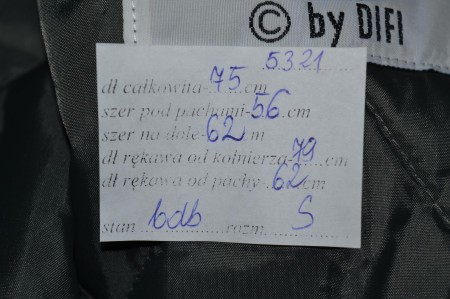 © by DIFI
5321
dł całkowita-75 cm
szer pod pachami-56 cm
szer na dole-62 m
dł rękawa od kołnierza-79 cm
dł rękawa od pachy 62 cm
stan bdb rozm. S